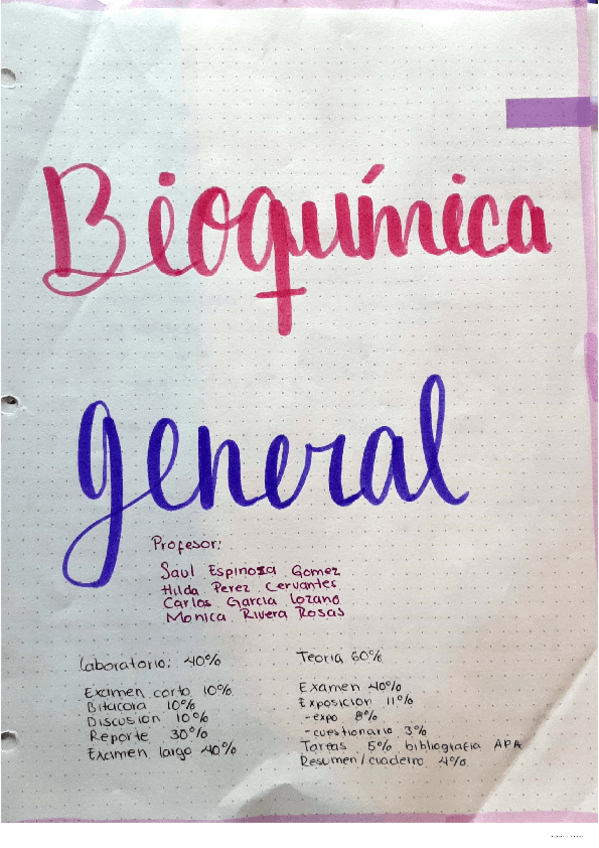 Bioquímica
general
Profesor:
Saul Espinosa Gomez
Hilda Perez Cervantes
Carlos Garcia Lozano
Monica Rivera Rosas
Laboratorio: 40%
Examen corto 10%
Bitacora 10%
Discusion 10%
Reporte 30%
Examen largo 40%
Teoria 60%
Examen 40%
Exposicion 11%
-expo 8%
-cuestionario 3%
Tareas 5% bibliografia APA
Resumen/cuaderno 4%